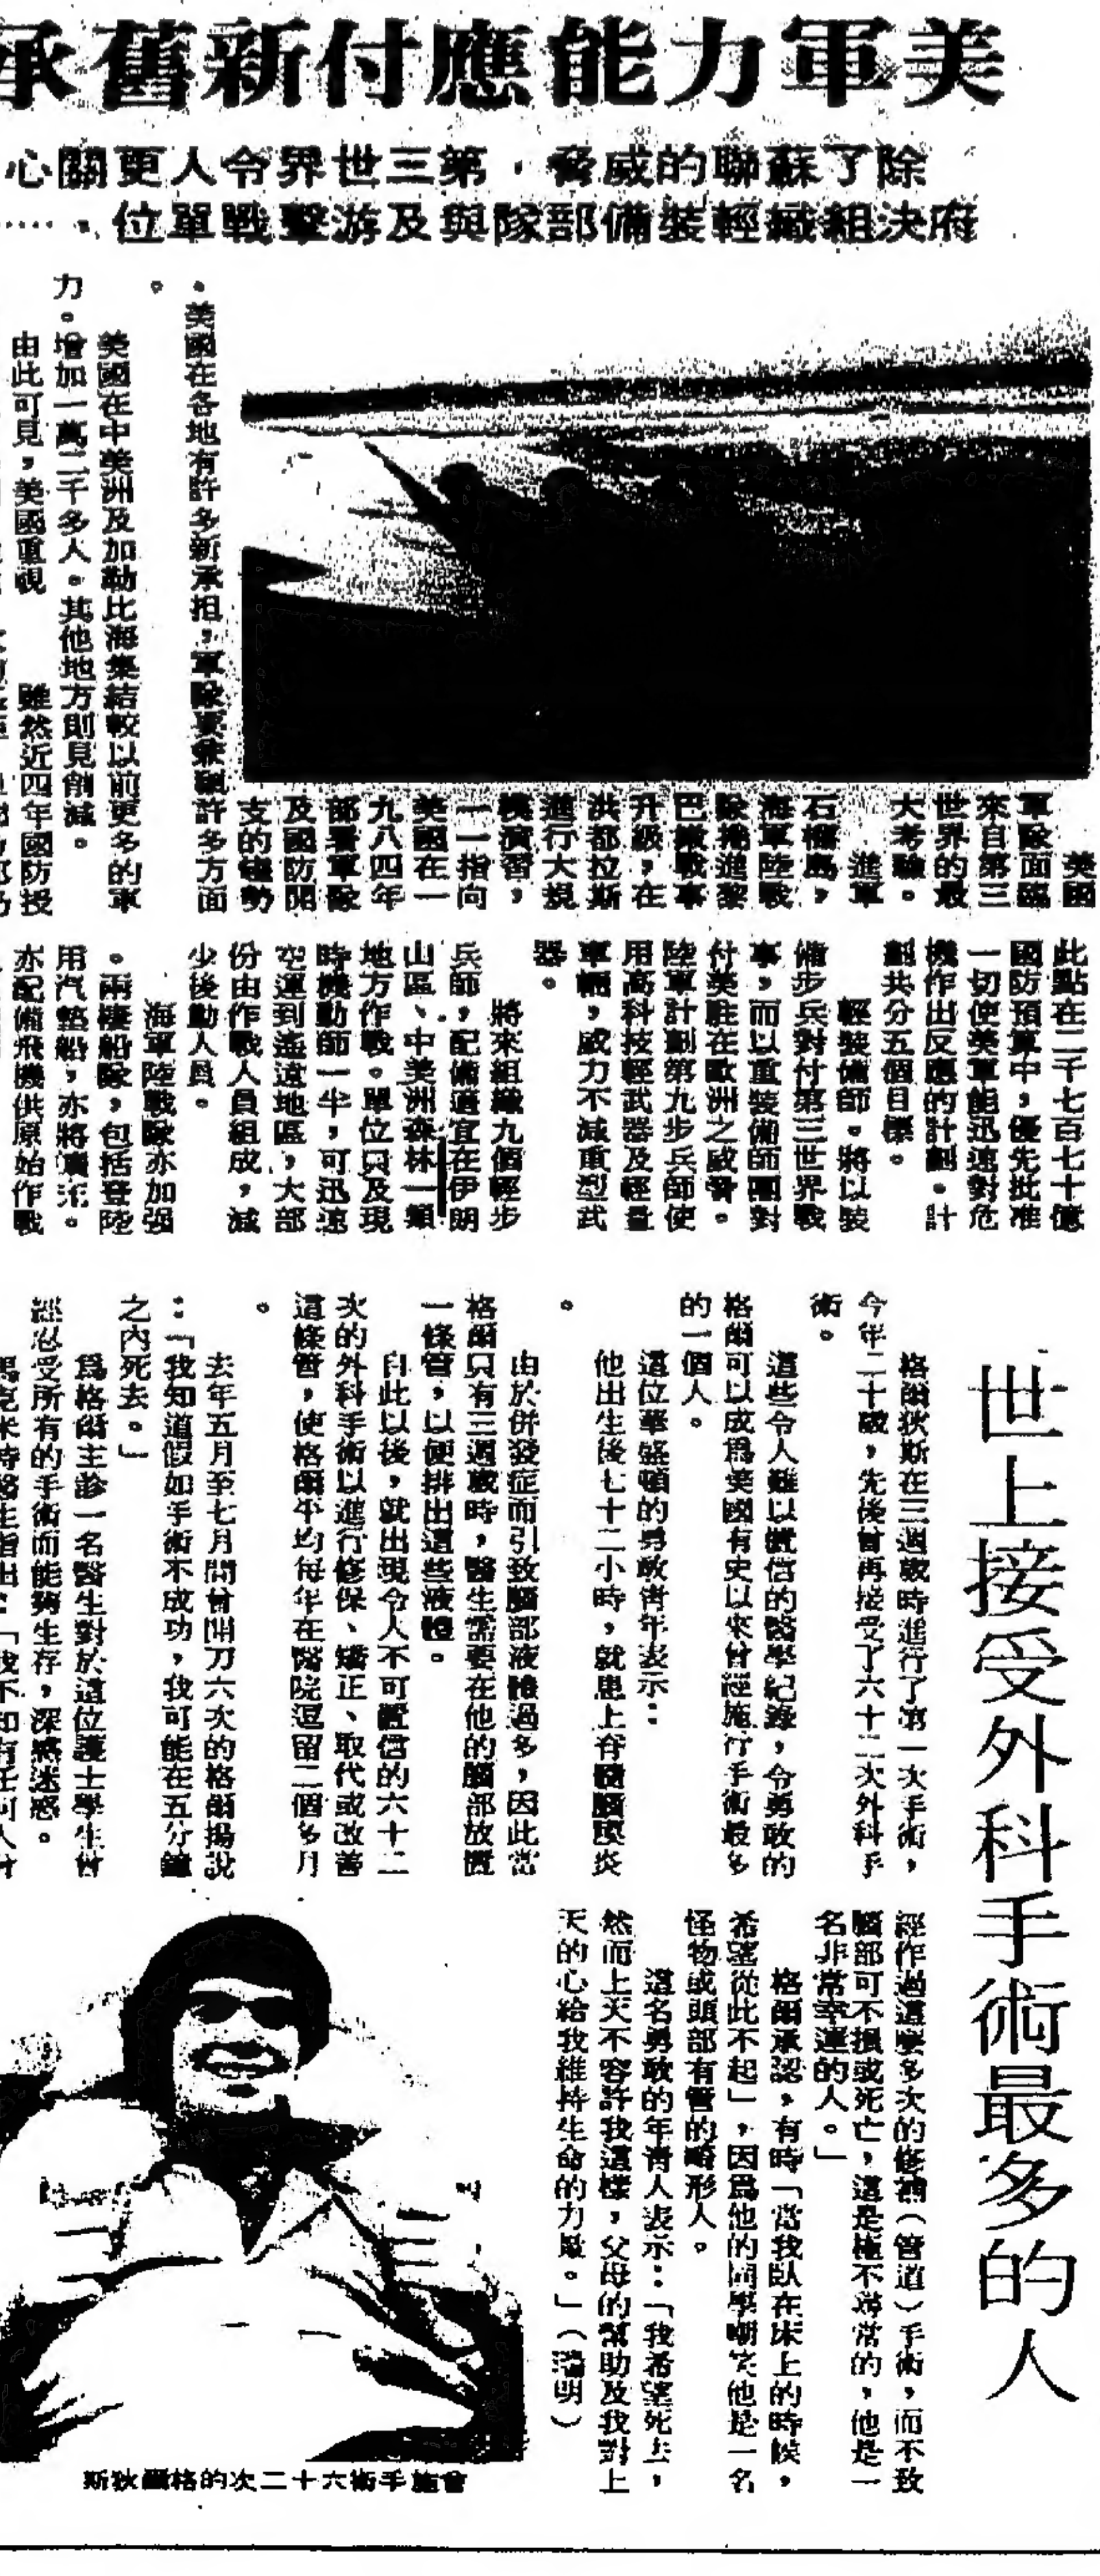 美軍力能應付新舊承
除了蘇聯的威脅，第三世界令人更關心
府決組織輕裝備部隊與及游擊戰單位，……
美國
軍隊面臨
來自第三
世界的最
大考驗。
進軍
石榴島，
海軍陸戰
隊挺進黎
巴嫩戰事
升級，在
洪都拉斯
進行大規
模演習，
一一指向
美國在一
九八四年
部署軍隊
及國防開
支的趨勢
。美國在各地有許多新承担，軍隊要兼顧許多方面
。
美國在中美洲及加勒比海集結較以前更多的軍
力。增加一萬二千多人。其他地方則見削減。
由此可見，美國重視
雖然近四年國防授
此點在二千七百七十億
國防預算中，優先批准
一切使美軍能迅速對危
機作出反應的計劃。計
劃共分五個目標。
輕裝備師。將以裝
備步兵對付第三世界戰
事，而以重裝備師團對
付美駐在歐洲之威脅。
陸軍計劃第九步兵師使
用高科技輕武器及輕量
軍輛，威力不減重型武
器。
將來組織九個輕步
兵師，配備適宜在伊朗
山區、中美洲森林一類
地方作戰。單位只及現
時機動師一半，可迅速
空運到遙遠地區，大部
份由作戰人員組成，減
少後勤人員。
海軍陸戰隊亦加强
。兩棲船隊，包括登陸
用汽墊船，亦將擴充。
亦配備飛機供原始作戰
世上接受外科手術最多的人
格爾狄斯在三週歲時進行了第一次手術，
今年二十歲，先後曾再接受了六十二次外科手
術。
這些令人難以置信的醫學紀錄，令勇敢的
格爾可以成爲美國有史以來曾經施行手術最多
的一個人。
這位華盛頓的勇敢靑年表示：
他出生後七十二小時，就患上脊髓腦膜炎
。
由於併發症而引致腦部液體過多，因此當
格爾只有三週歲時，醫生需要在他的腦部放置
一條管，以便排出這些液體。
自此以後，就出現令人不可置信的六十二
次的外科手術以進行修保、矯正、取代或改善
這條管，使格爾平均每年在醫院逗留二個多月
。
去年五月至七月間曾開刀六次的格爾揚說
：「我知道假如手術不成功，我可能在五分鐘
之內死去。」
爲格爾主診一名醫生對於這位護士學生曾
經忍受所有的手術而能夠生存，深感迷惑。
馬克米特醫生指出：「我不知有任何人曾
經作過這麼多次的修補（管道）手術，而不致
腦部可不損或死亡，這是極不尋常的，他是一
名非常幸運的人。」
格爾承認，有時「當我臥在床上的時候，
希望從此不起」，因爲他的同學嘲笑他是一名
怪物或頭部有管的畸形人。
這名勇敢的年靑人表示：「我希望死去，
然而上天不容許我這樣，父母的幫助及我對上
天的心給我維持生命的力量。」（瀛明）
曾施手術六十二次的格爾狄斯